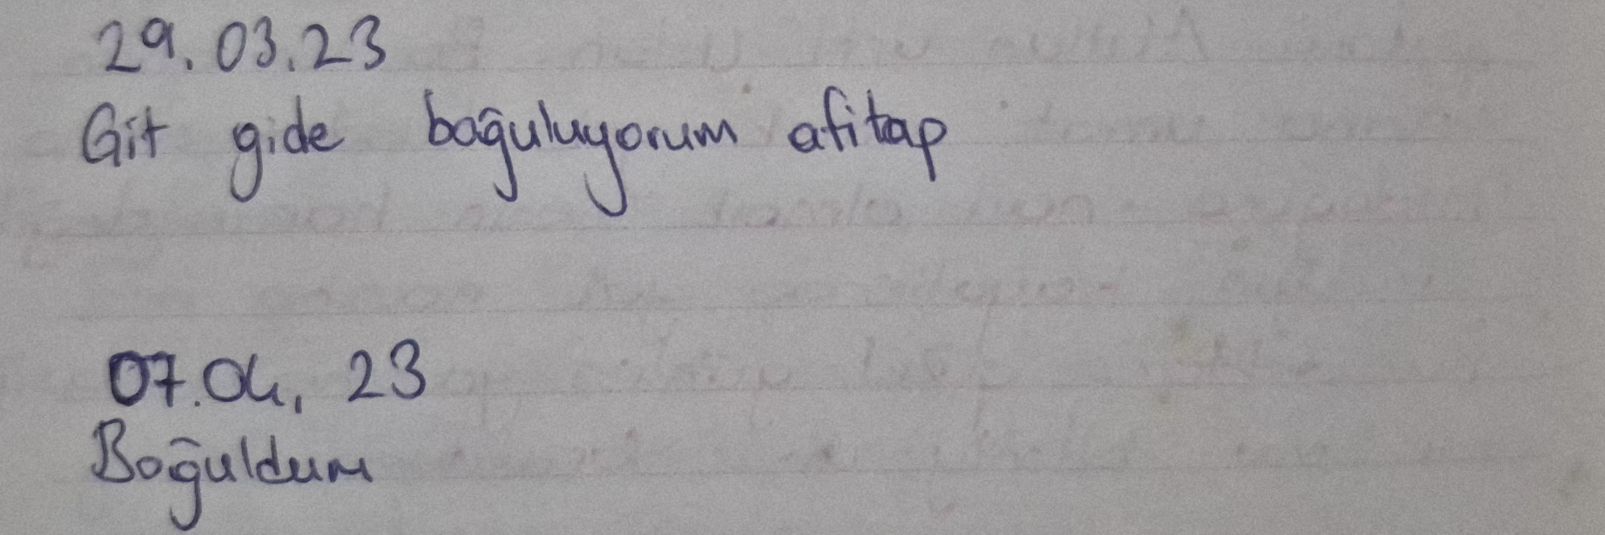 29.03.23
Git gide boğuluyorum afitap
07.04.23
Boğuldum